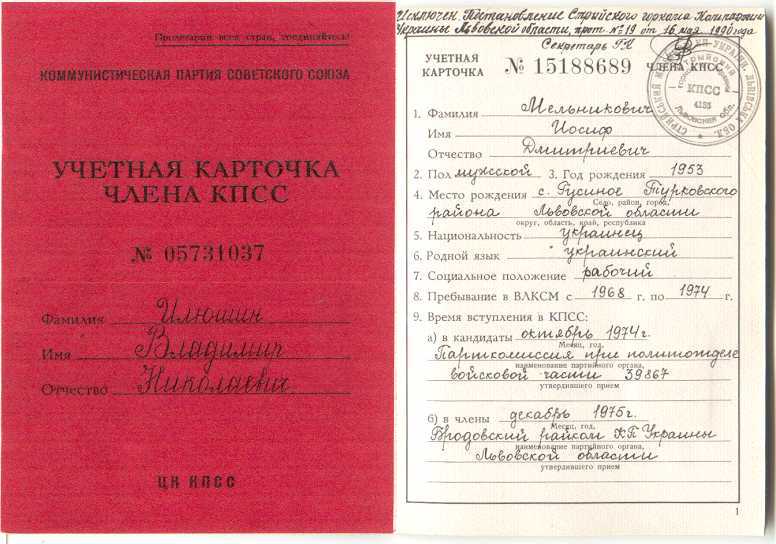 Пролетарии всех стран, соединяйтесь!
КОММУНИСТИЧЕСКАЯ ПАРТИЯ СОВЕТСКОГО СОЮЗА
УЧЕТНАЯ КАРТОЧКА
ЧЛЕНА КПСС
№ 05731037
Фамилия Илюшин
Имя Владимир
Отчество Николаевич
ЦК КПСС
Исключен. Постановление Стрийского горкома Компартии
Украины Львовской области, прот №19 от 16 мая 1990 года
Секретарь ГК
УЧЕТНАЯ
КАРТОЧКА № 15188689 ЧЛЕНА КПСС
КПСС
4135
1. Фамилия Мельникович
Имя Иосиф
Отчество Дмитриевич
2. Пол мужской 3. Год рождения 1953
4. Место рождения с. Русиное Турковского
Село, район, город,
района Львовской области
округ, область, край, республика
5. Национальность украинец
6. Родной язык украинский
7. Социальное положение рабочий
8. Пребывание в ВЛКСМ с 1968 г. по 1974 г.
9. Время вступления в КПСС:
а) в кандидаты октябрь 1974г.
Месяц, год,
Парткомиссия при политотделе
наименование партийного органа,
войсковой части 39867
утвердившего прием
б) в члены декабрь 1975г.
Месяц, год,
Городовский райком КП Украины
наименование партийного органа,
Львовской области
утвердившего прием
1